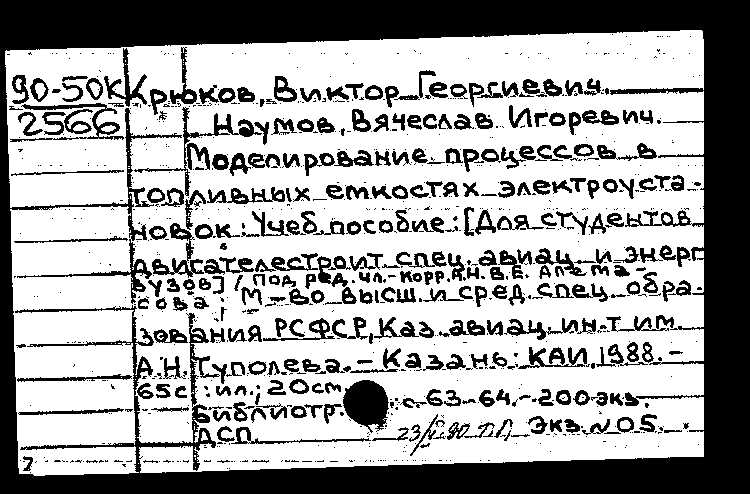 90-50К Крюков, Виктор Георгиевич.
2566 Наумов, Вячеслав Игоревич.
Моделирование процессов в
топливных емкостях электроуста-
новок: Учеб. пособие: [Для студентов
двигателестроит. спец. авиац. и энерг.
вузов] / Под ред. чл.-корр. А.Н. В.Е. Алема-
сова; М-во высш. и сред. спец. обра-
зования РСФСР, Каз. авиац. ин-т им.
А.Н. Туполева. - Казань: КАИ, 1988. -
65с.: ил.; 20см.
Библиогр.: с. 63-64. - 200 экз.
ДСП. Экз. N 05.